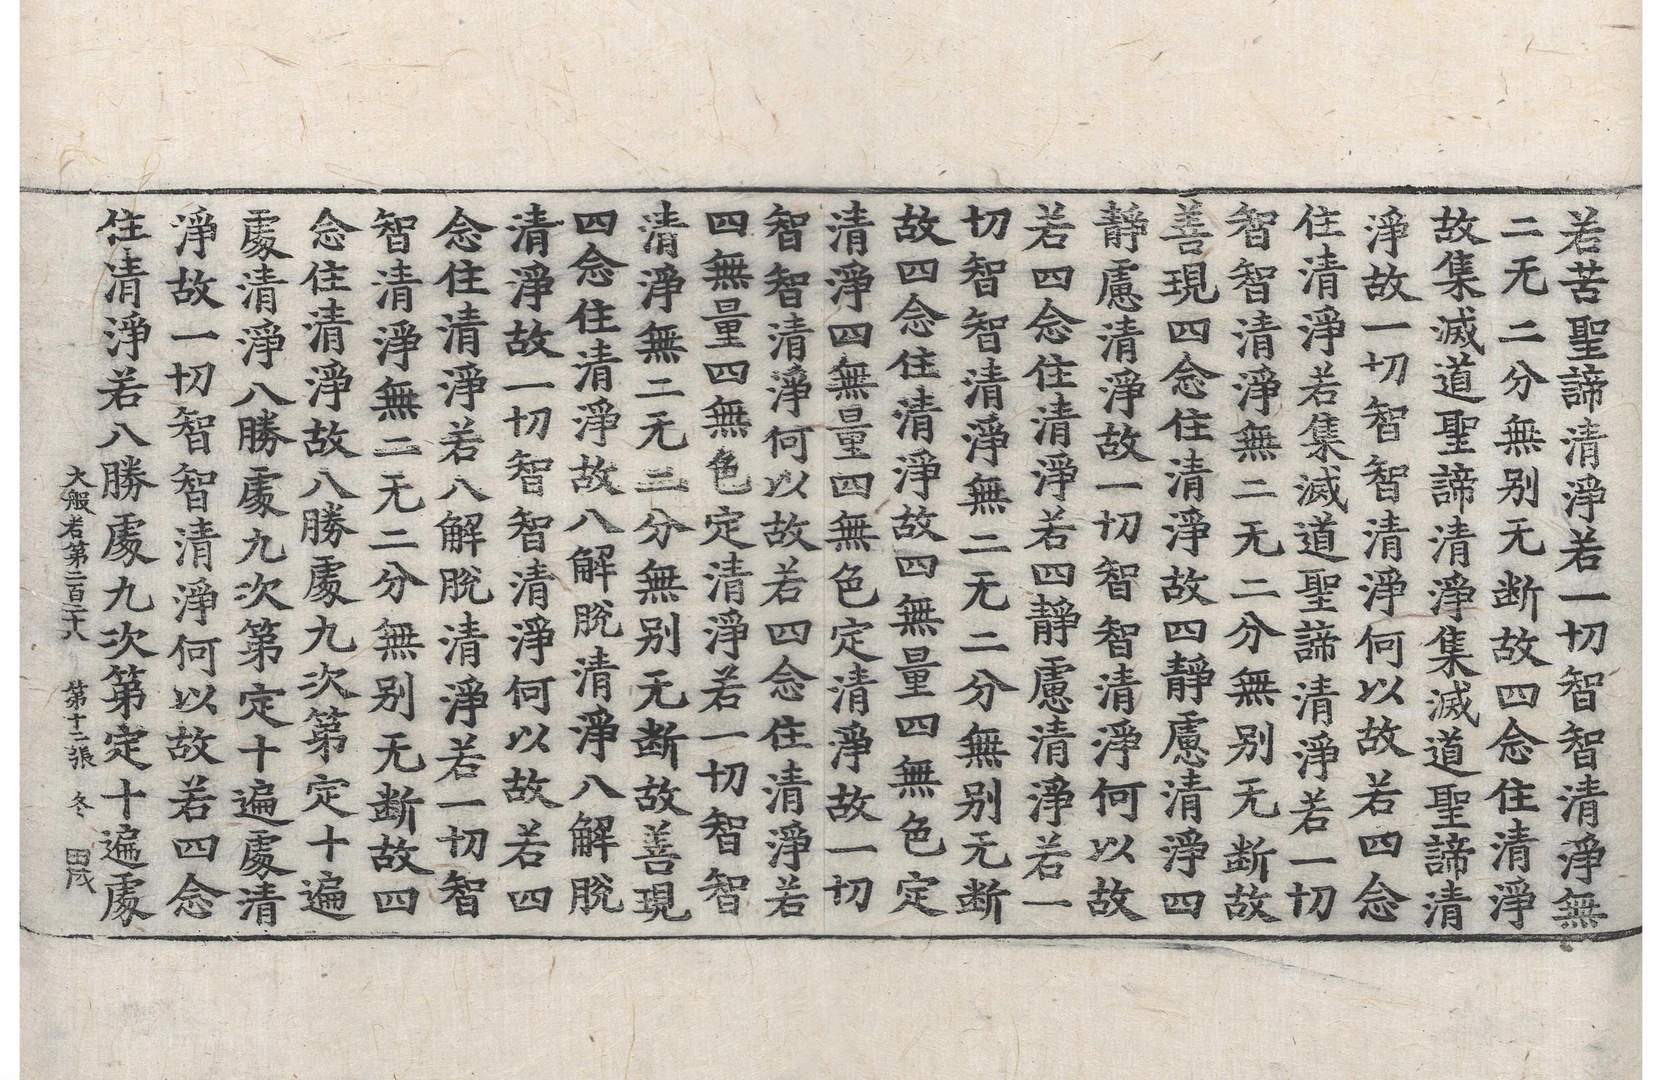 若苦聖諦清淨若一切智智清淨無
二无二分無别无断故四念住清淨
故集滅道聖諦清淨集滅道聖諦清
淨故一切智智清淨何以故若四念
住清淨若集滅道聖諦清淨若一切
智智清淨無二无二分無别无断故
善現四念住清淨故四靜慮清淨四
靜慮清淨故一切智智清淨何以故
若四念住清淨若四靜慮清淨若一
切智智清淨無二无二分無别无断
故四念住清淨故四無量四無色定
清淨四無量四無色定清淨故一切
智智清淨何以故若四念住清淨若
四無量四無色定清淨若一切智智
清淨無二无二分無别无断故善現
四念住清淨故八解脫清淨八解脫
清淨故一切智智清淨何以故若四
念住清淨若八解脫清淨若一切智
智清淨無二无二分無别无断故四
念住清淨故八勝處九次第定十遍
處清淨八勝處九次第定十遍處清
淨故一切智智清淨何以故若四念
住清淨若八勝處九次第定十遍處
大般若第二百二十八 第十二張 冬